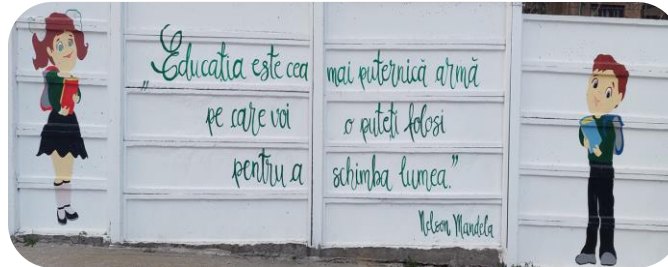 „Educatia este cea mai puternică armă
pe care voi o puteți folosi
pentru a schimba lumea.”
Nelson Mandela